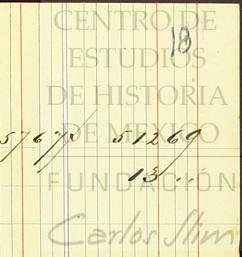 CENTRO DE
18
ESTUDIOS
DE HISTORIA
DE MEXICO
51269
13 ..
FUNDACIÓN
Carlos Slim